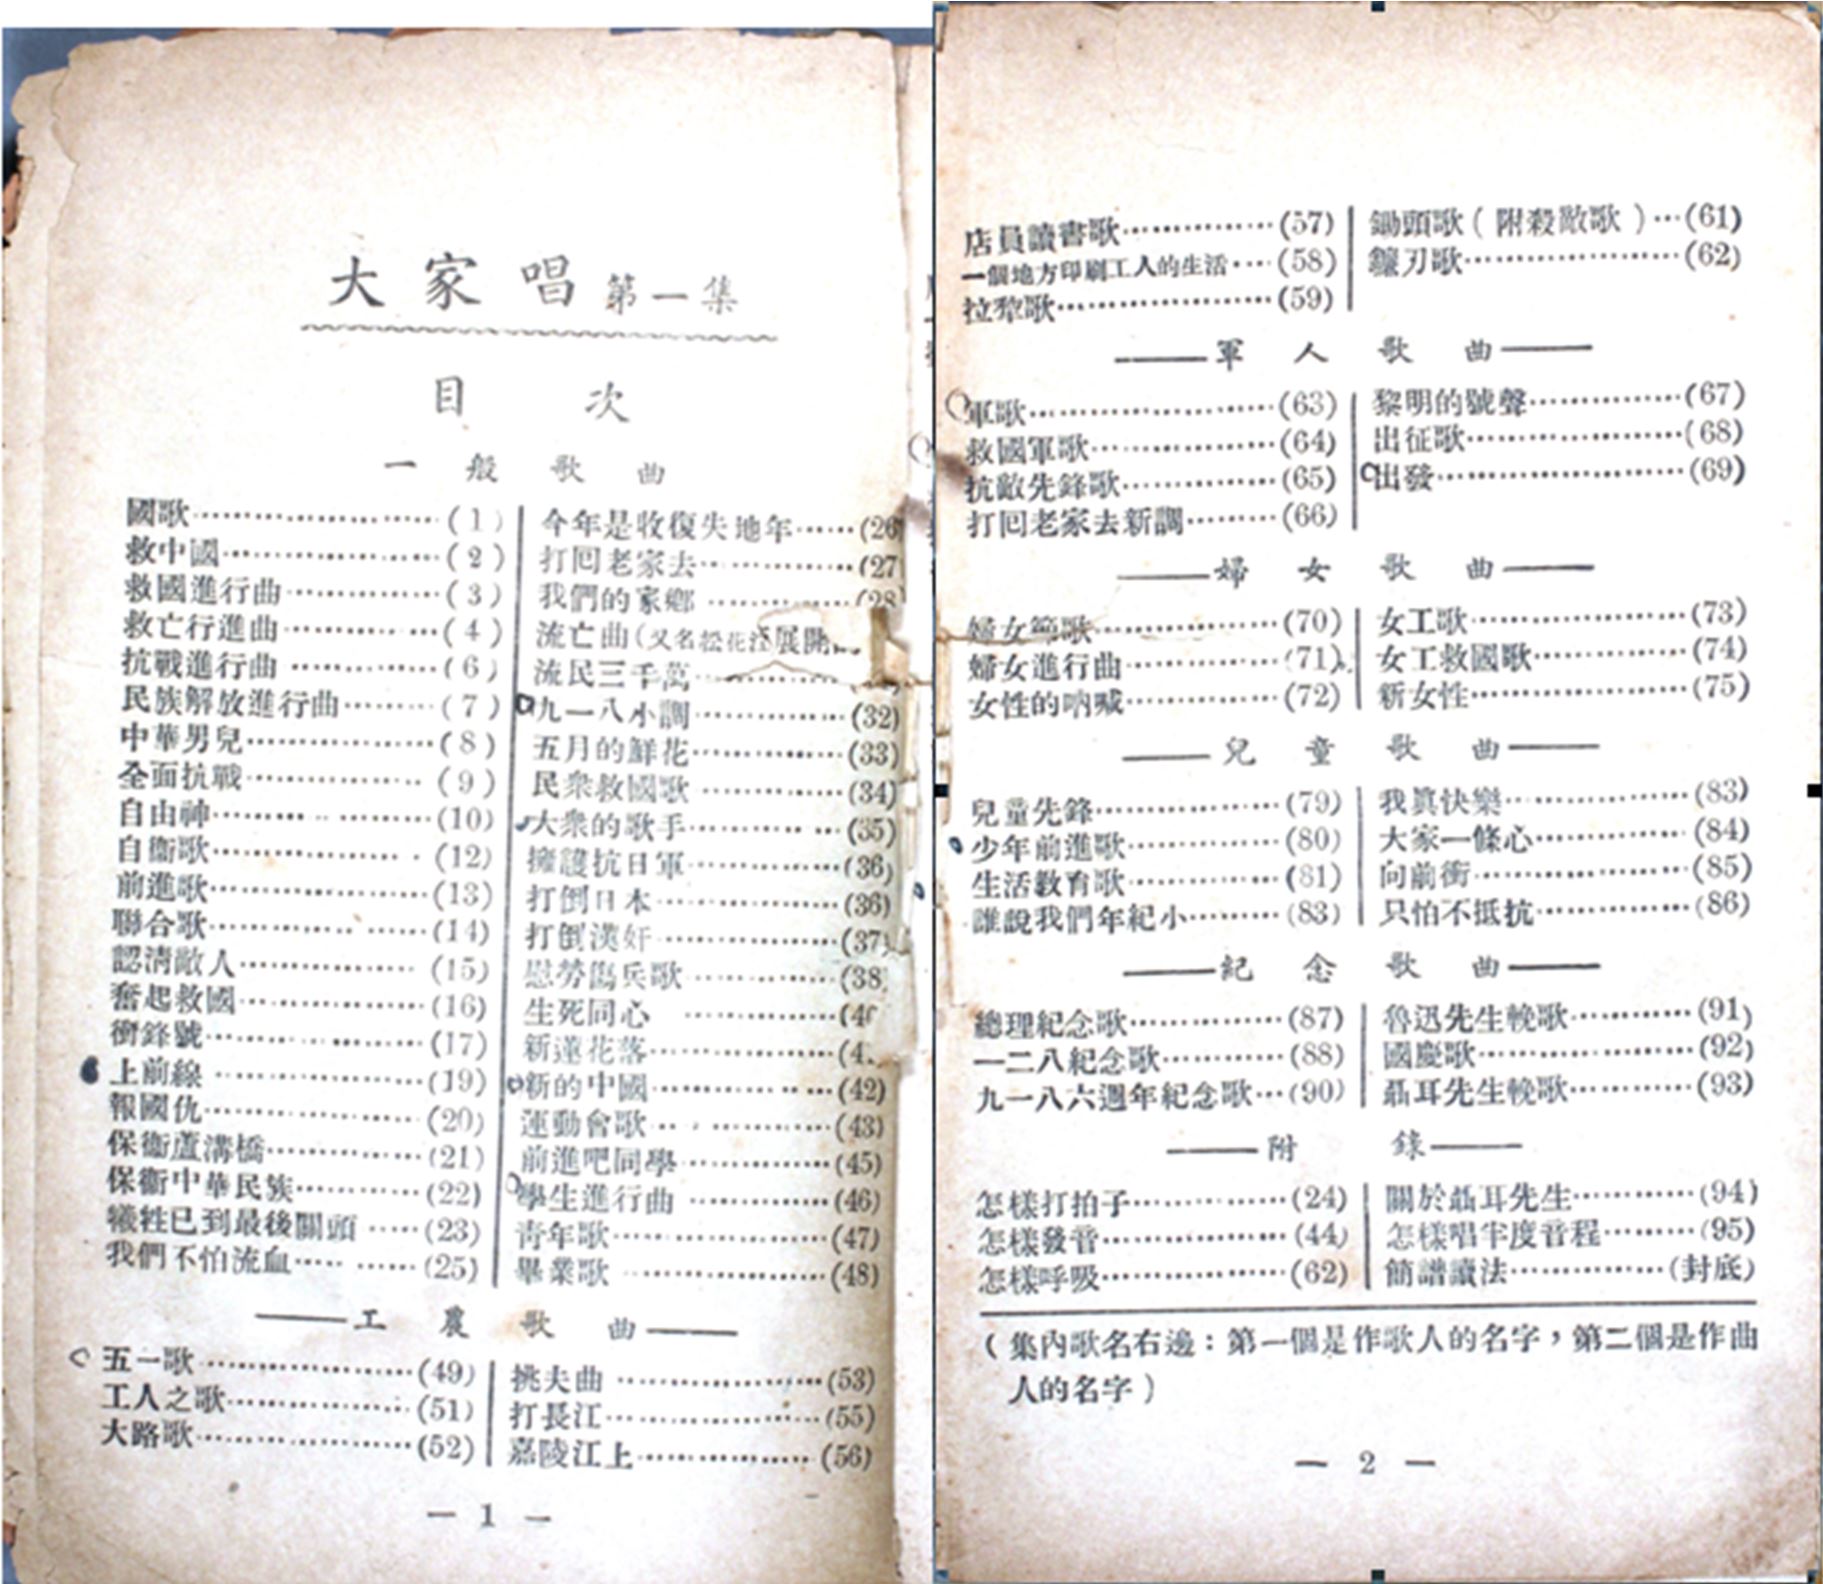 大家唱 第一集
目次
一般歌曲
國歌 (1)
救中國 (2)
救國進行曲 (3)
救亡行進曲 (4)
抗戰進行曲 (6)
民族解放進行曲 (7)
中華男兒 (8)
全面抗戰 (9)
自由神 (10)
自衞歌 (12)
前進歌 (13)
聯合歌 (14)
認清敵人 (15)
奮起救國 (16)
衝鋒號 (17)
上前線 (19)
報國仇 (20)
保衞蘆溝橋 (21)
保衞中華民族 (22)
犧牲已到最後關頭 (23)
我們不怕流血 (25)
今年是收復失地年 (26)
打囘老家去 (27)
我們的家鄉 (28)
流亡曲(又名松花江
流民三千萬
九一八小調 (32)
五月的鮮花 (33)
民衆救國歌 (34)
大衆的歌手 (35)
擁護抗日軍 (36)
打倒日本 (36)
打倒漢奸 (37)
慰勞傷兵歌 (38)
生死同心
新蓮花落
新的中國 (42)
運動會歌 (43)
前進吧同學 (45)
學生進行曲 (46)
靑年歌 (47)
畢業歌 (48)
工農歌曲
五一歌 (49)
工人之歌 (51)
大路歌 (52)
挑夫曲 (53)
打長江 (55)
嘉陵江上 (56)
— 1 —
店員讀書歌 (57)
一個地方印刷工人的生活 (58)
拉犂歌 (59)
鋤頭歌(附殺敵歌) (61)
鐮刀歌 (62)
軍人歌曲
軍歌 (63)
救國軍歌 (64)
抗敵先鋒歌 (65)
打囘老家去新調 (66)
黎明的號聲 (67)
出征歌 (68)
出發 (69)
婦女歌曲
婦女節歌 (70)
婦女進行曲 (71)
女性的吶喊 (72)
女工歌 (73)
女工救國歌 (74)
新女性 (75)
兒童歌曲
兒童先鋒 (79)
少年前進歌 (80)
生活敎育歌 (81)
誰說我們年紀小 (83)
我眞快樂 (83)
大家一條心 (84)
向前衝 (85)
只怕不抵抗 (86)
紀念歌曲
總理紀念歌 (87)
一二八紀念歌 (88)
九一八六週年紀念歌 (90)
魯迅先生輓歌 (91)
國慶歌 (92)
聶耳先生輓歌 (93)
附錄
怎樣打拍子 (24)
怎樣發音 (44)
怎樣呼吸 (62)
關於聶耳先生 (94)
怎樣唱半度音程 (95)
簡譜讀法 (封底)
(集內歌名右邊：第一個是作歌人的名字，第二個是作曲
人的名字)
— 2 —